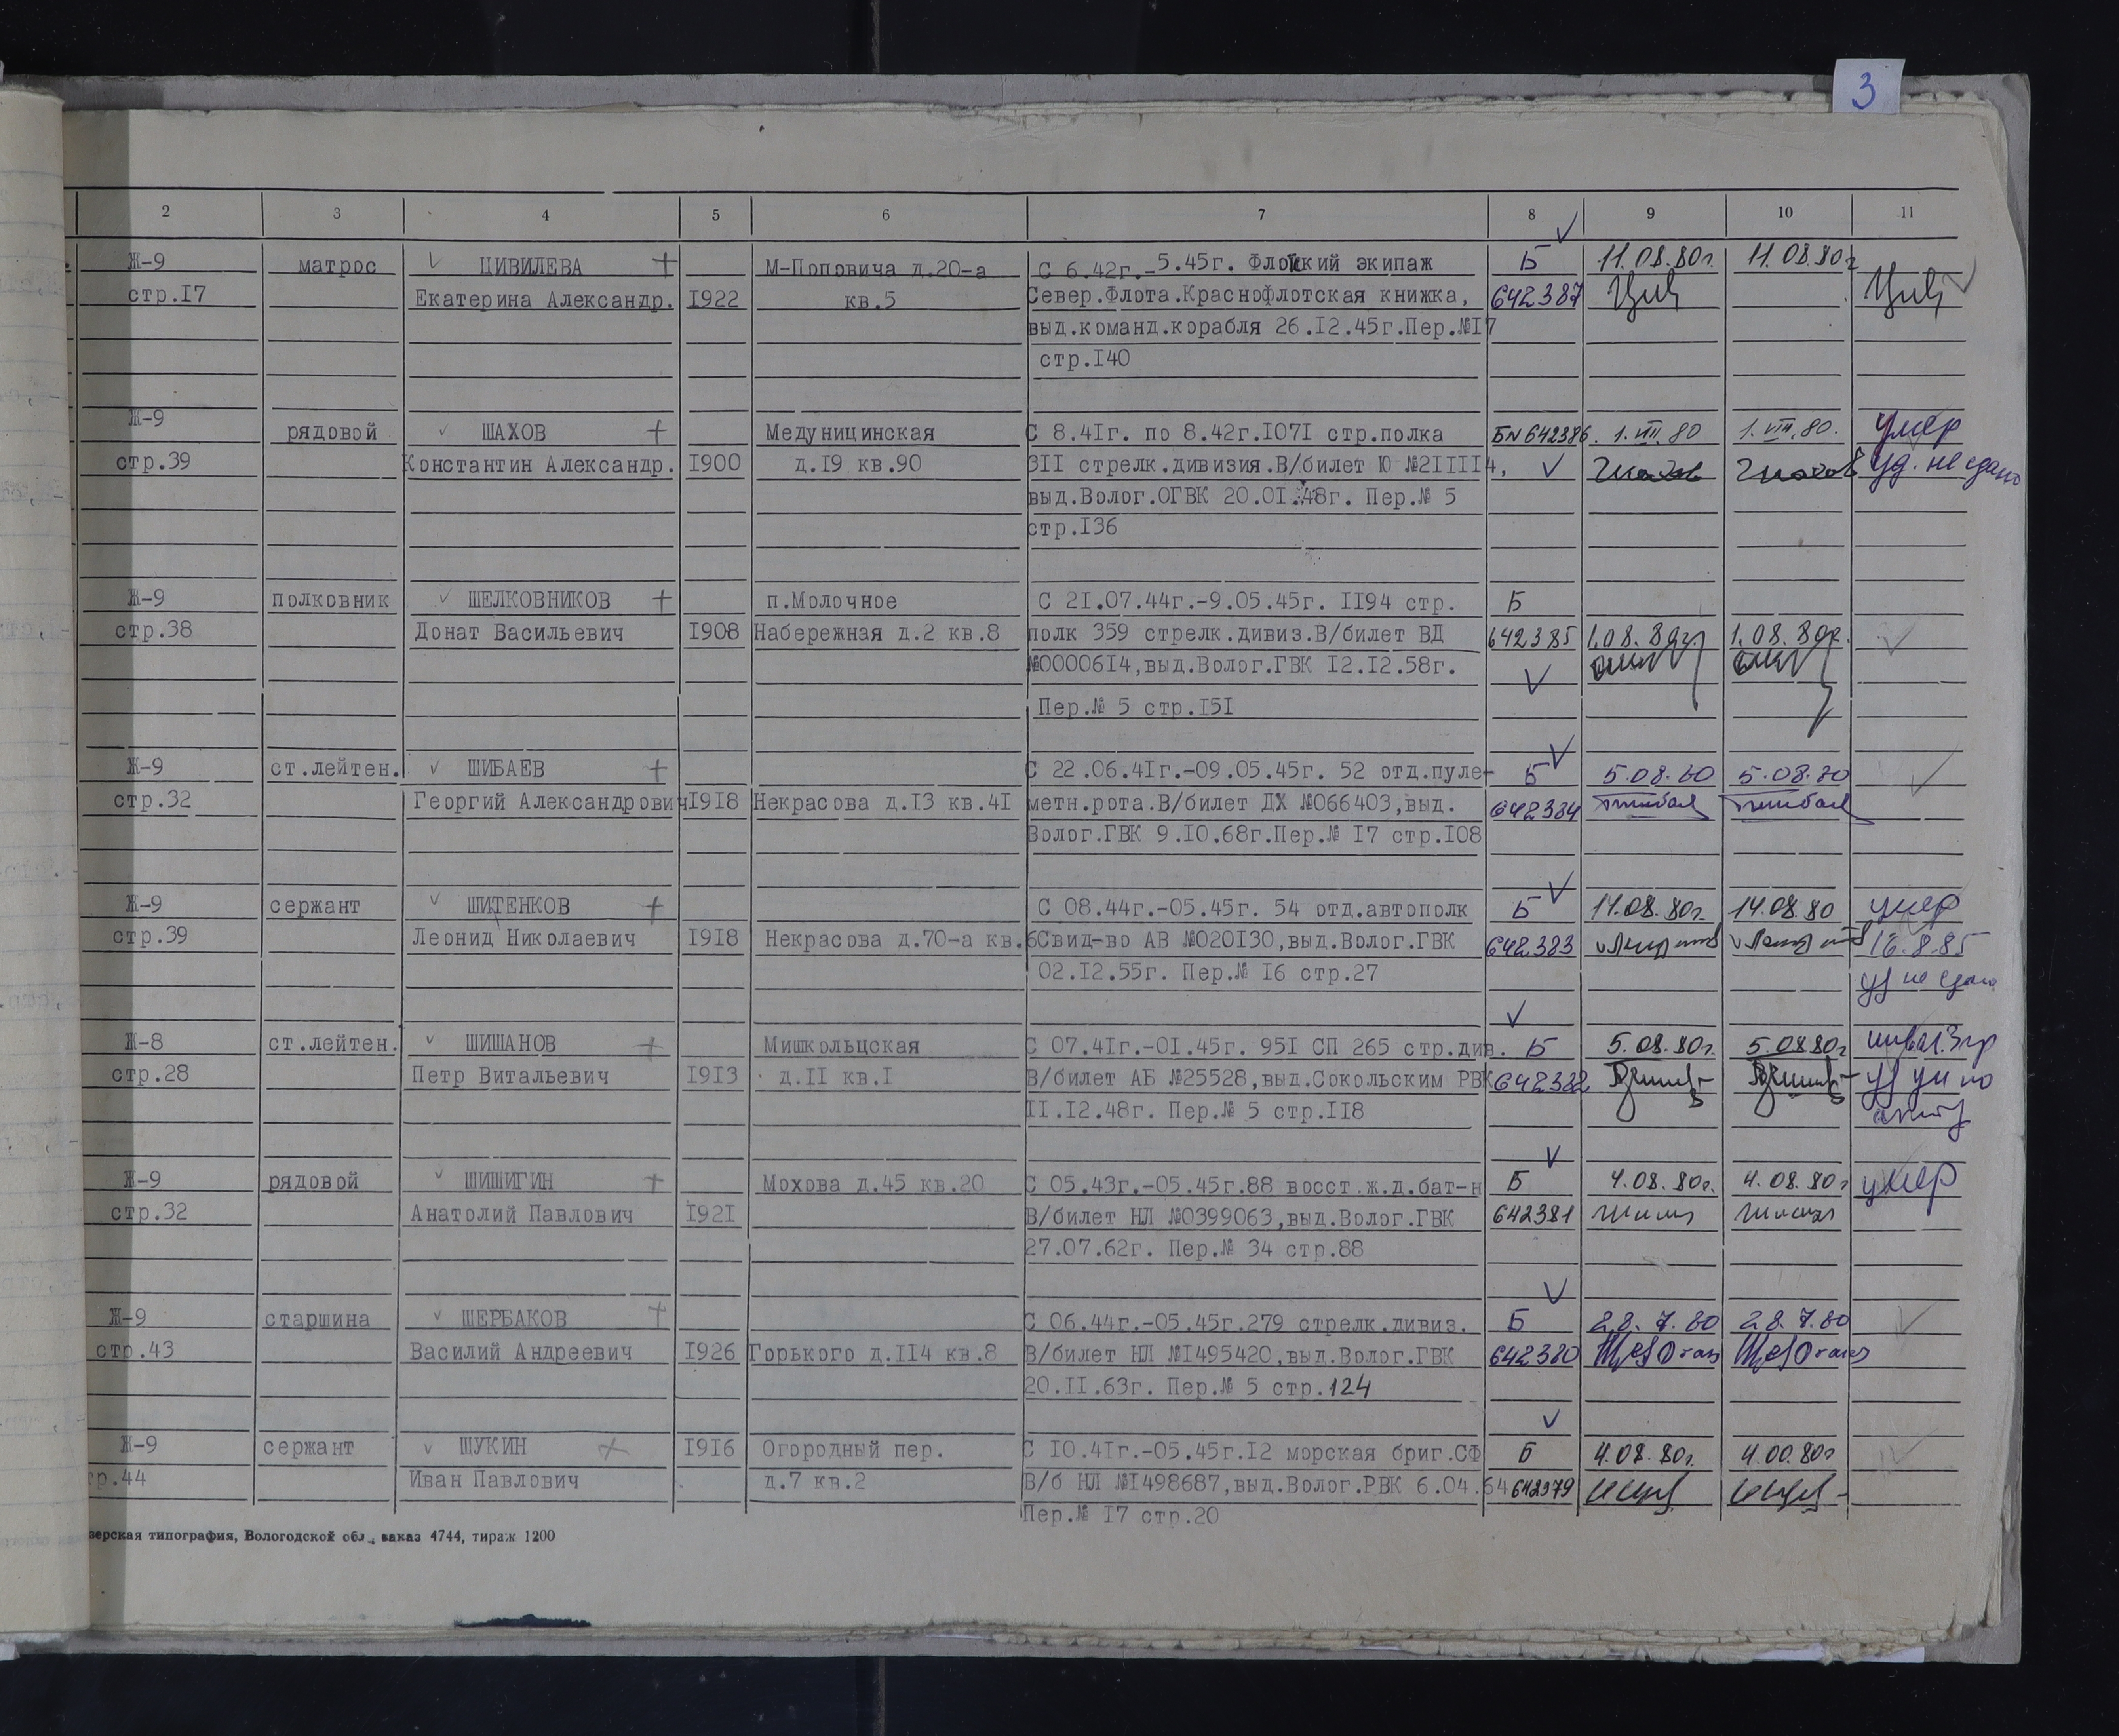 3
2 3 4 5 6 7 8 9 10 11
Ж-9 матрос ЦИВИЛЕВА + М-Поповича д.20-а С 6.42г.-5.45г. Флотский экипаж Б 11.08.80г. 11.08.80г
стр.17 Екатерина Александр. 1922 кв.5 Север.Флота.Краснофлотская книжка, 642387 Цив Цив
выд.команд.корабля 26.12.45г.Пер.№17
стр.140
Ж-9 рядовой ШАХОВ + Медуницинская С 8.41г. по 8.42г.1071 стр.полка Б№642386. 1.VIII.80 1.VIII.80. умер
стр.39 Константин Александр. 1900 д.19 кв.90 311 стрелк.дивизия.В/билет Ю №211114, Шахов Шахов уд. не сдано
выд.Волог.ОГВК 20.01.48г. Пер.№ 5
стр.136
Ж-9 полковник ШЕЛКОВНИКОВ + п.Молочное С 21.07.44г.-9.05.45г. 1194 стр. Б
стр.38 Донат Васильевич 1908 Набережная д.2 кв.8 полк 359 стрелк.дивиз.В/билет ВД 642385 1.08.80г 1.08.80г.
№0000614,выд.Волог.ГВК 12.12.58г.
Пер.№ 5 стр.151
Ж-9 ст.лейтен. ШИБАЕВ + С 22.06.41г.-09.05.45г. 52 отд.пуле- Б 5.08.80 5.08.80
стр.32 Георгий Александрович 1918 Некрасова д.13 кв.41 метн.рота.В/билет ДХ №066403,выд. 642384 Шибаев Шибаев
Волог.ГВК 9.10.68г.Пер.№ 17 стр.108
Ж-9 сержант ШИТЕНКОВ + С 08.44г.-05.45г. 54 отд.автополк Б 14.08.80г. 14.08.80 умер
стр.39 Леонид Николаевич 1918 Некрасова д.70-а кв.6 Свид-во АВ №020130,выд.Волог.ГВК 642383 16.8.85
02.12.55г. Пер.№ 16 стр.27 уд не сдано
Ж-8 ст.лейтен. ШИШАНОВ + Мишкольцская С 07.41г.-01.45г. 951 СП 265 стр.див. Б 5.08.80г. 5.08.80г инвал.3гр
стр.28 Петр Витальевич 1913 д.11 кв.1 В/билет АБ №25528,выд.Сокольским РВК 642382 уд ун по
11.12.48г. Пер.№ 5 стр.118 акту
Ж-9 рядовой ШИШИГИН + Мохова д.45 кв.20 С 05.43г.-05.45г.88 восст.ж.д.бат-н Б 4.08.80г. 4.08.80г умер
стр.32 Анатолий Павлович 1921 В/билет НЛ №0399063,выд.Волог.ГВК 642381
27.07.62г. Пер.№ 34 стр.88
Ж-9 старшина ШЕРБАКОВ + С 06.44г.-05.45г.279 стрелк.дивиз. Б 28.7.80 28.7.80
стр.43 Василий Андреевич 1926 Горького д.114 кв.8 В/билет НЛ №1495420,выд.Волог.ГВК 642380
20.11.63г. Пер.№ 5 стр.124
Ж-9 сержант ЩУКИН + 1916 Огородный пер. С 10.41г.-05.45г.12 морская бриг.СФ Б 4.08.80г. 4.00.80г
тр.44 Иван Павлович д.7 кв.2 В/б НЛ №1498687,выд.Волог.РВК 6.04.64 642379
Пер.№ 17 стр.20
зерская типография, Вологодской обл., заказ 4744, тираж 1200